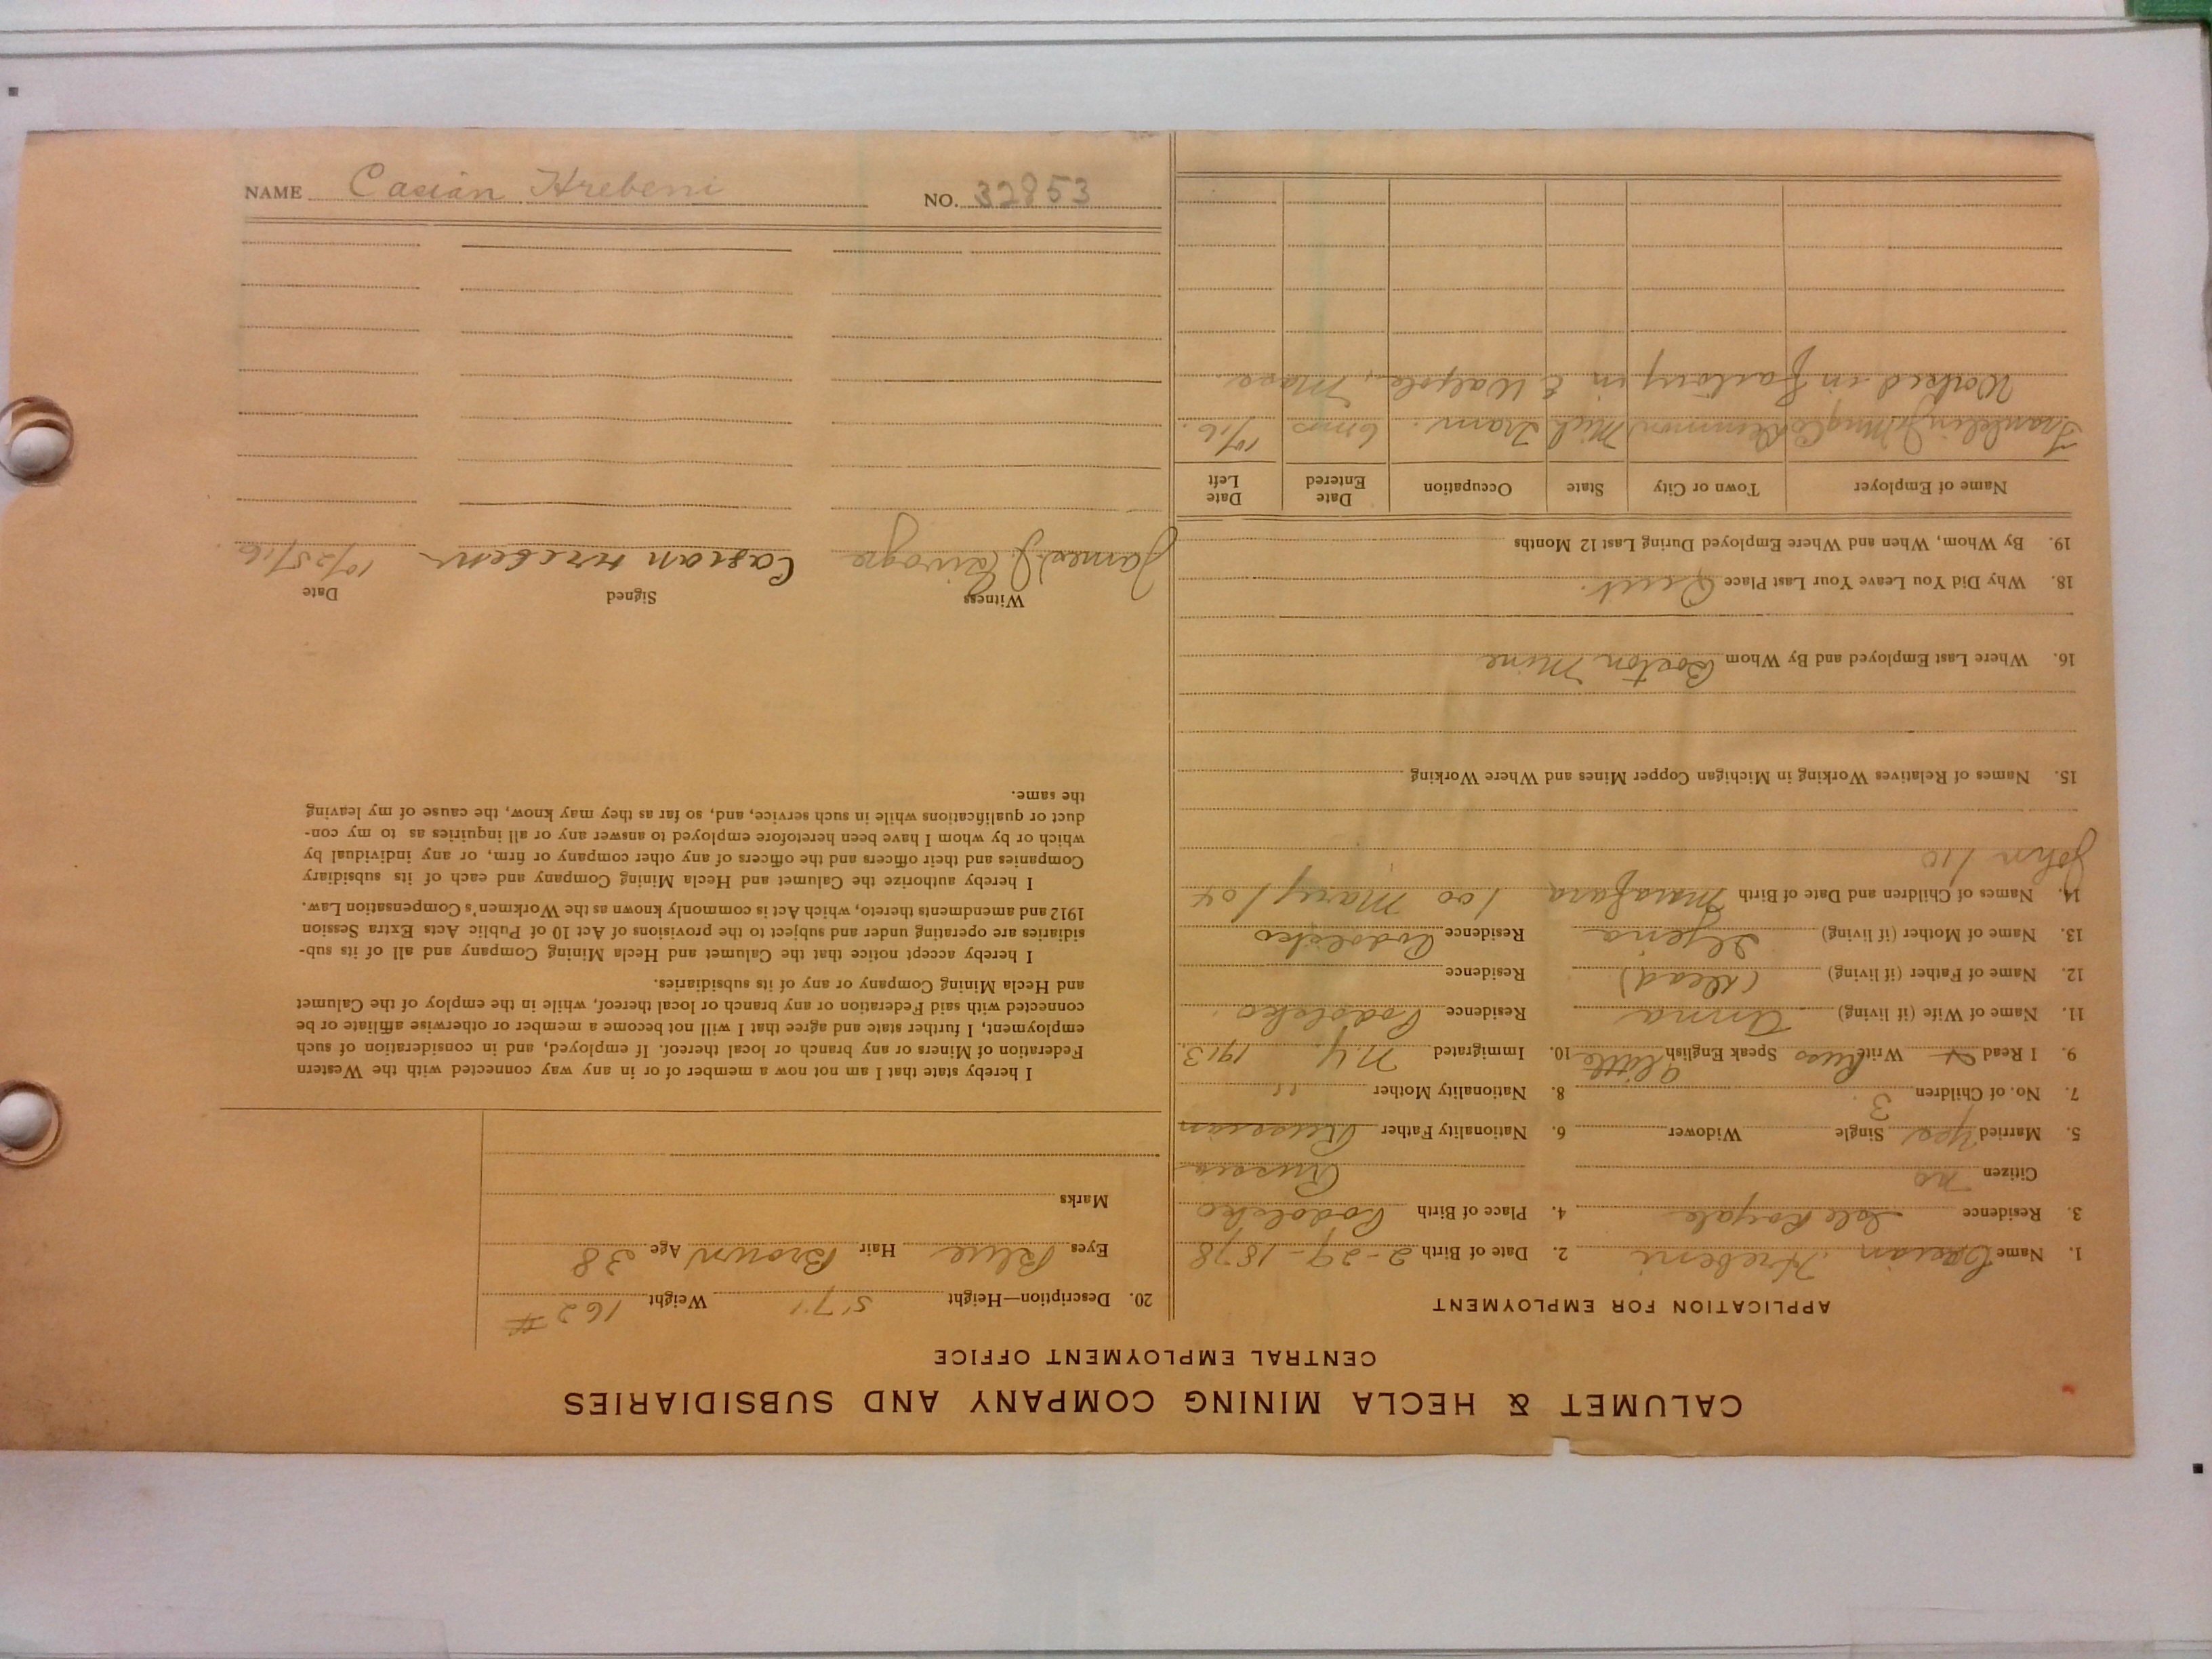 CALUMET & HECLA MINING COMPANY AND SUBSIDIARIES
CENTRAL EMPLOYMENT OFFICE
APPLICATION FOR EMPLOYMENT
1. Name Casian Hrebeni 2. Date of Birth 2-29-1878
3. Residence Isle Royale 4. Place of Birth Podolsko
Citizen no Russia
5. Married Yes Single Widower 6. Nationality Father Russian
7. No. of Children 3. 8. Nationality Mother "
9. I Read & Write Russ Speak English a little 10. Immigrated N.Y. 1913
11. Name of Wife (if living) Anna Residence Podolsko.
12. Name of Father (if living) (Dead) Residence
13. Name of Mother (if living) Residence Podolsko
14. Names of Children and Date of Birth 100 Mary 104
John 110
15. Names of Relatives Working in Michigan Copper Mines and Where Working
16. Where Last Employed and By Whom Boston Mine
18. Why Did You Leave Your Last Place Quit.
19. By Whom, When and Where Employed During Last 12 Months
Name of Employer Town or City State Occupation Date Entered Date Left
Franklin Jr Mng Co Demmon Mich Tram. 6 mos 10/16.
Worked in factory in E Walpole, Mass.
20. Description—Height 5'7" Weight 162 #
Eyes Blue Hair Brown Age 38
Marks
I hereby state that I am not now a member of or in any way connected with the Western
Federation of Miners or any branch or local thereof. If employed, and in consideration of such
employment, I further state and agree that I will not become a member or otherwise affiliate or be
connected with said Federation or any branch or local thereof, while in the employ of the Calumet
and Hecla Mining Company or any of its subsidiaries.
I hereby accept notice that the Calumet and Hecla Mining Company and all of its sub-
sidiaries are operating under and subject to the provisions of Act 10 of Public Acts Extra Session
1912 and amendments thereto, which Act is commonly known as the Workmen's Compensation Law.
I hereby authorize the Calumet and Hecla Mining Company and each of its subsidiary
Companies and their officers and the officers of any other company or firm, or any individual by
which or by whom I have been heretofore employed to answer any or all inquiries as to my con-
duct or qualifications while in such service, and, so far as they may know, the cause of my leaving
the same.
Witness Signed Date
James J Casian Hrebeni 10/25/16.
NAME Casian Hrebeni NO. 32953